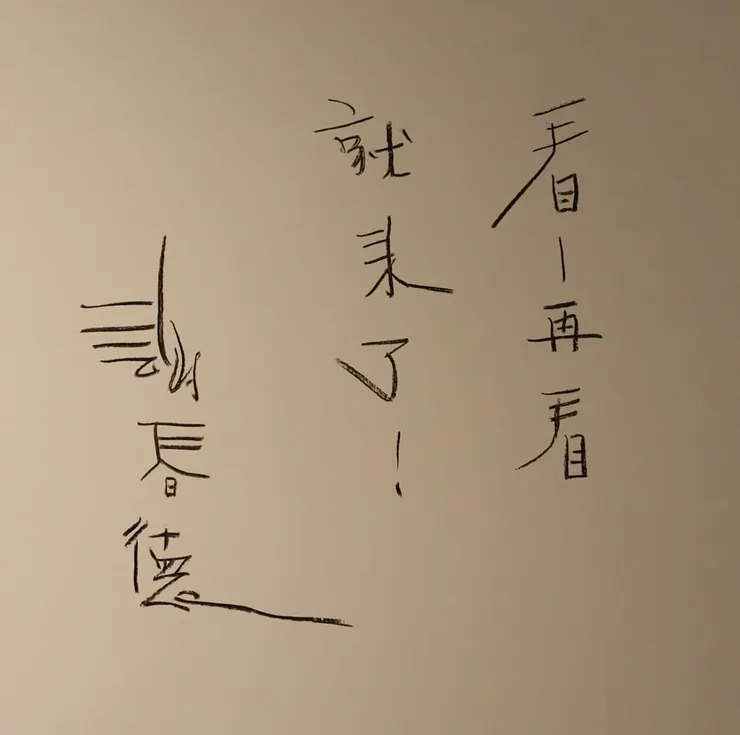 看一再看
就來了!
謝春德